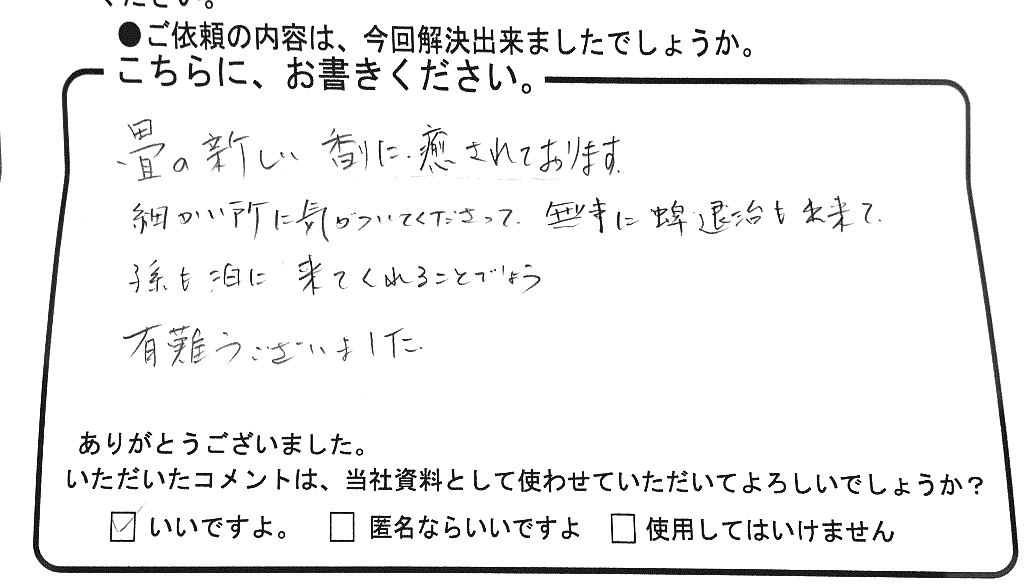 ください。
●ご依頼の内容は、今回解決出来ましたでしょうか。
こちらに、お書きください。
畳の新しい香りに癒されております。
細かい所に気がついてくださって、無事に蜂退治も出来て、
孫も泊に来てくれることでしょう
有難うございました。
ありがとうございました。
いただいたコメントは、当社資料として使わせていただいてよろしいでしょうか？
☑ いいですよ。 □ 匿名ならいいですよ □ 使用してはいけません